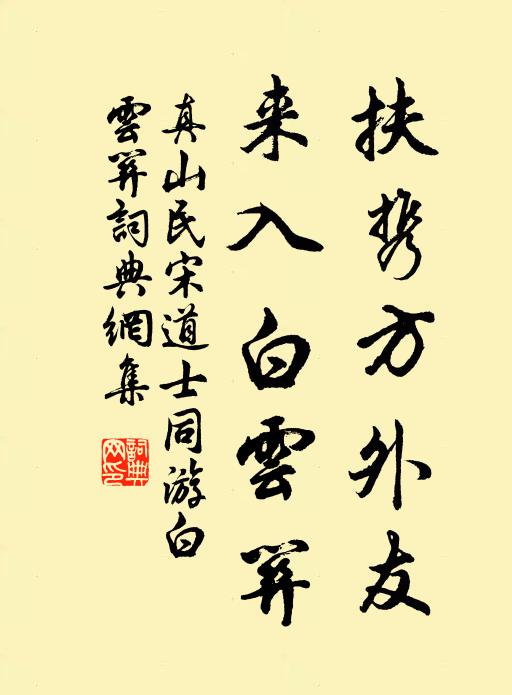 扶携方外友
来入白雲關
真山民宋道士同游白
雲關詞典網集
詞典
网印